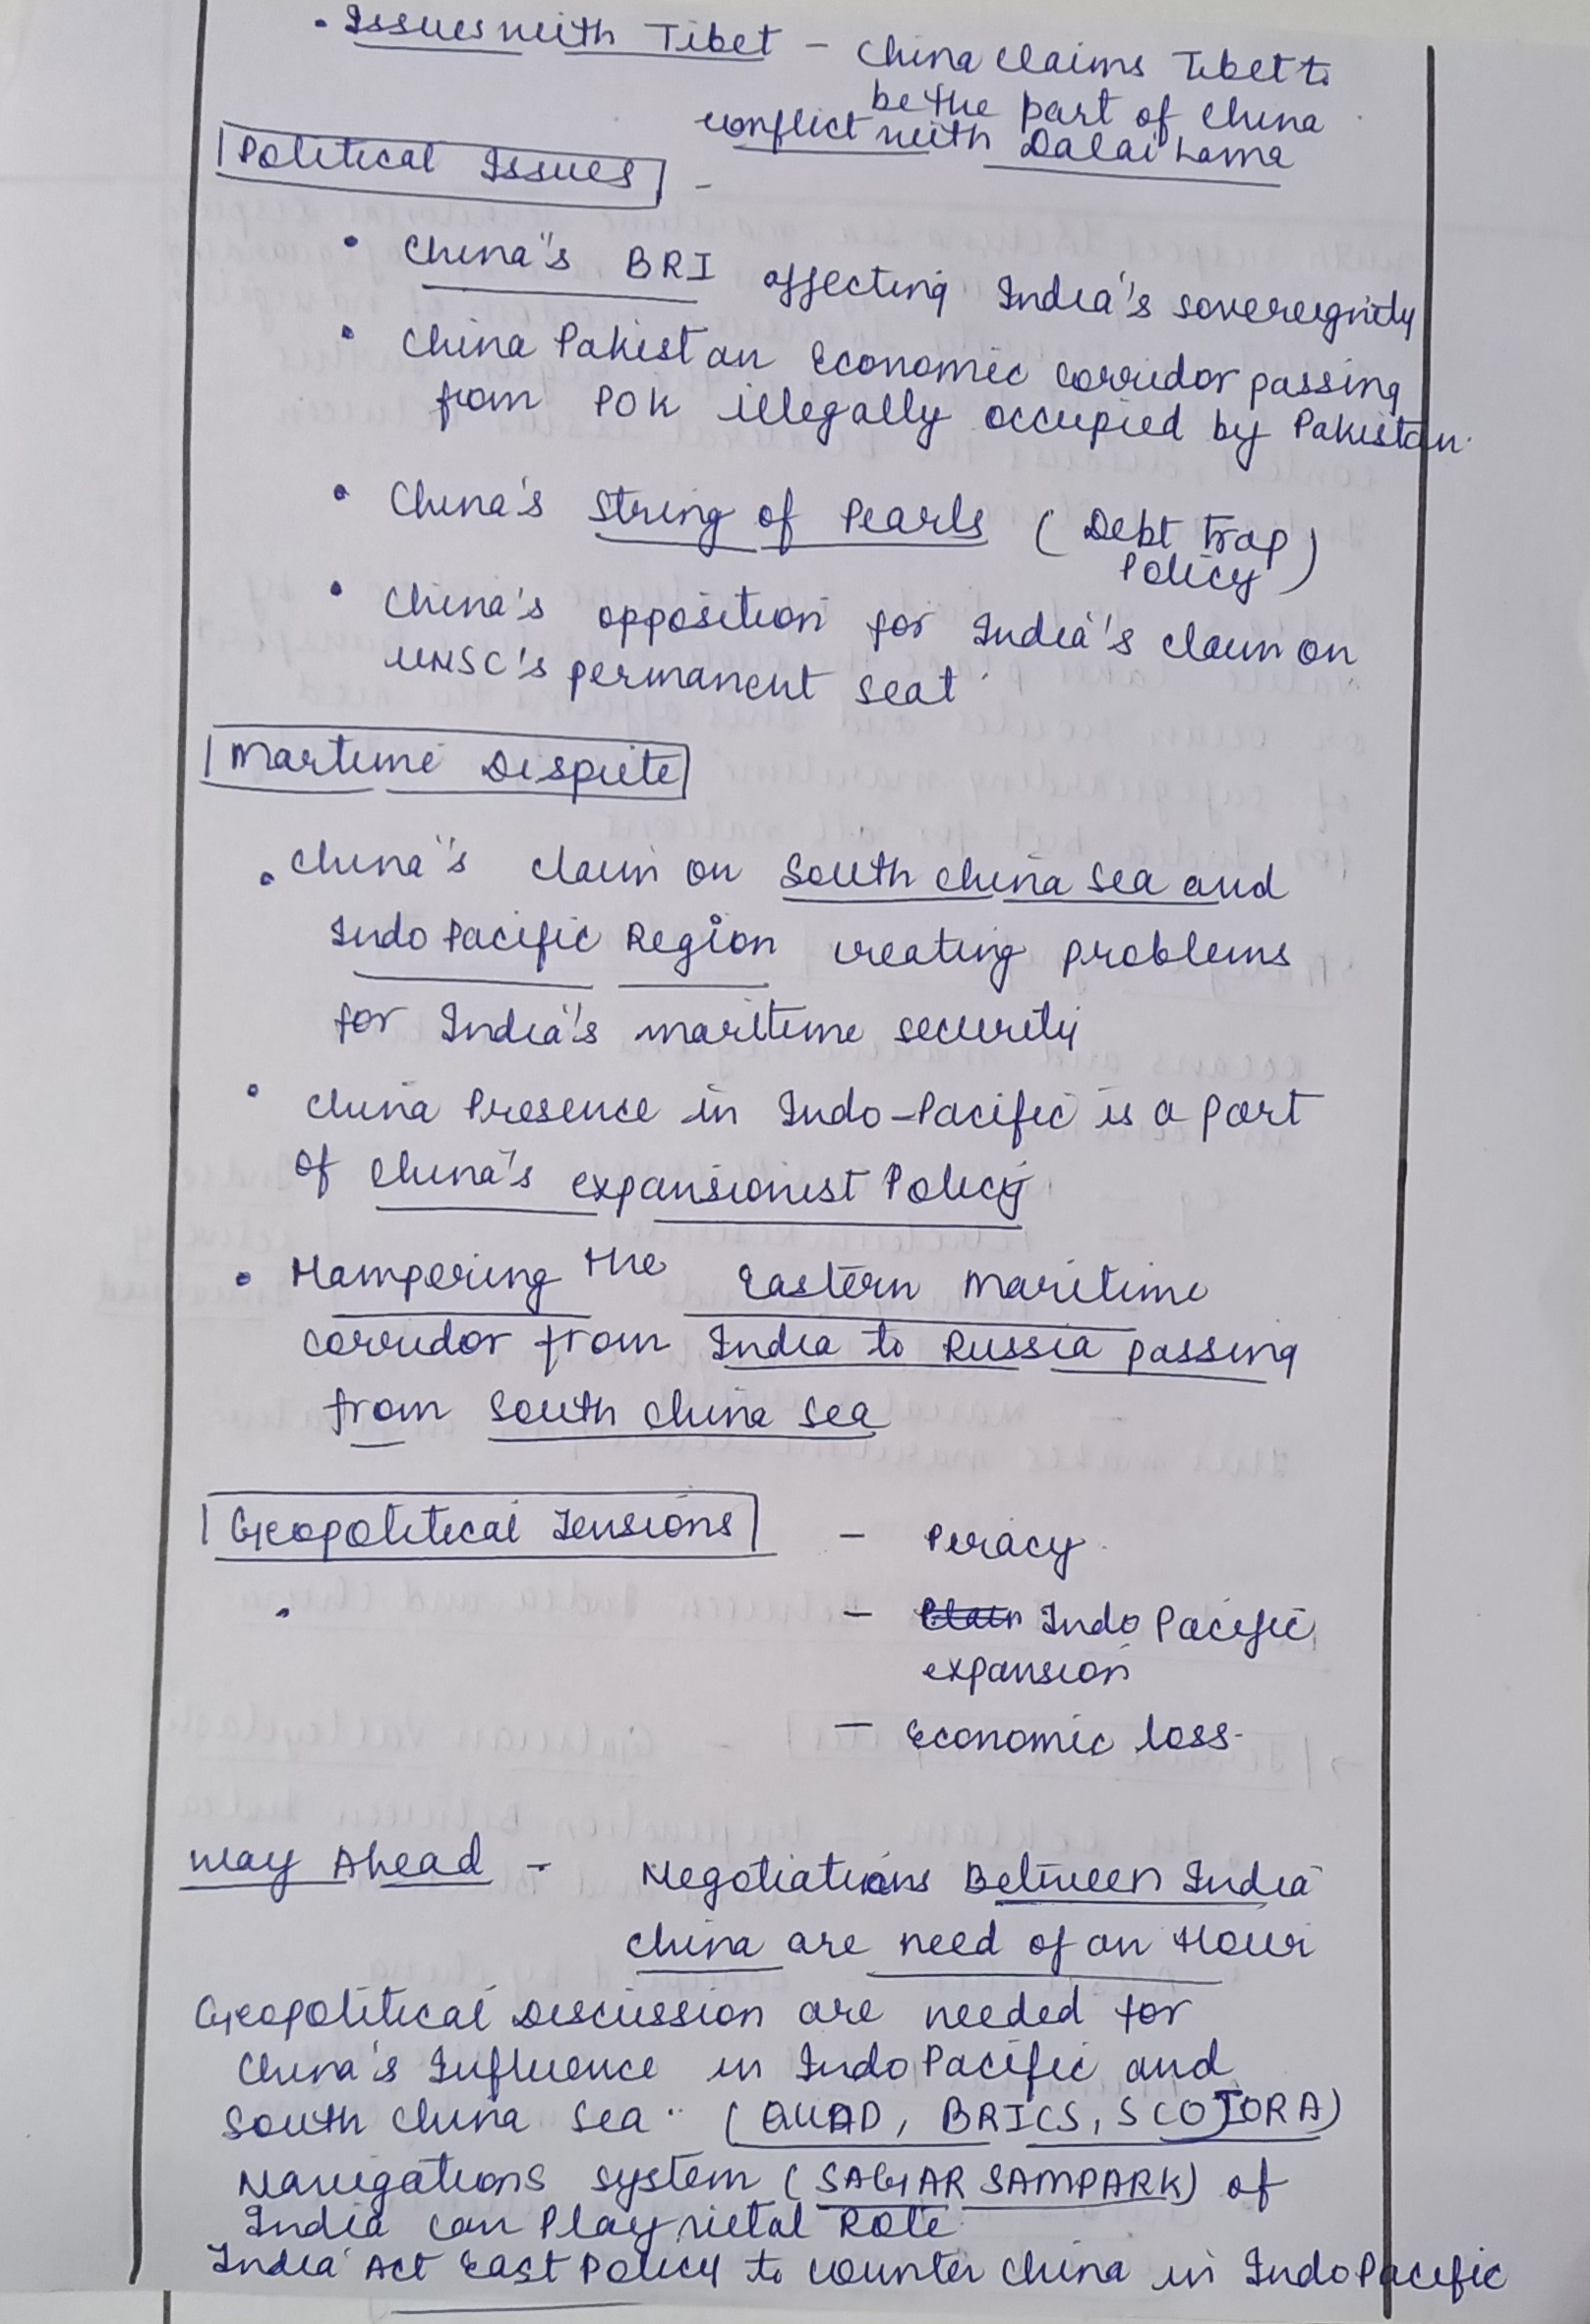 • Issues with Tibet - China claims Tibet to
be the part of China
conflict with Dalai Lama
Political Issues -
• China"s BRI affecting India's sovereignity
• China Pakistan Economic corridor passing
from POK illegally occupied by Pakistan.
• China's String of Pearls (Debt trap
Policy)
• China's opposition for India's claim on
UNSC's permanent seat.
Martime Dispute
• China"s claim on South China Sea and
Indo Pacific Region creating problems
for India's maritime security
• China Presence in Indo-Pacific is a part
of China's expansionist Policy
• Hampering the Eastern Maritime
corridor from India to Russia passing
from South China Sea
Geopolitical Tensions - Piracy
- Indo Pacific
expansion
- Economic loss
Way Ahead - Negotiations Between India
China are need of an Hour
Geopolitical Discussion are needed for
China's Influence in Indo Pacific and
South China Sea (QUAD, BRICS, SCO,
Navigations system (SAGAR SAMPARK) of
India can Play vital Role
India Act East Policy to counter China in Indo Pacific